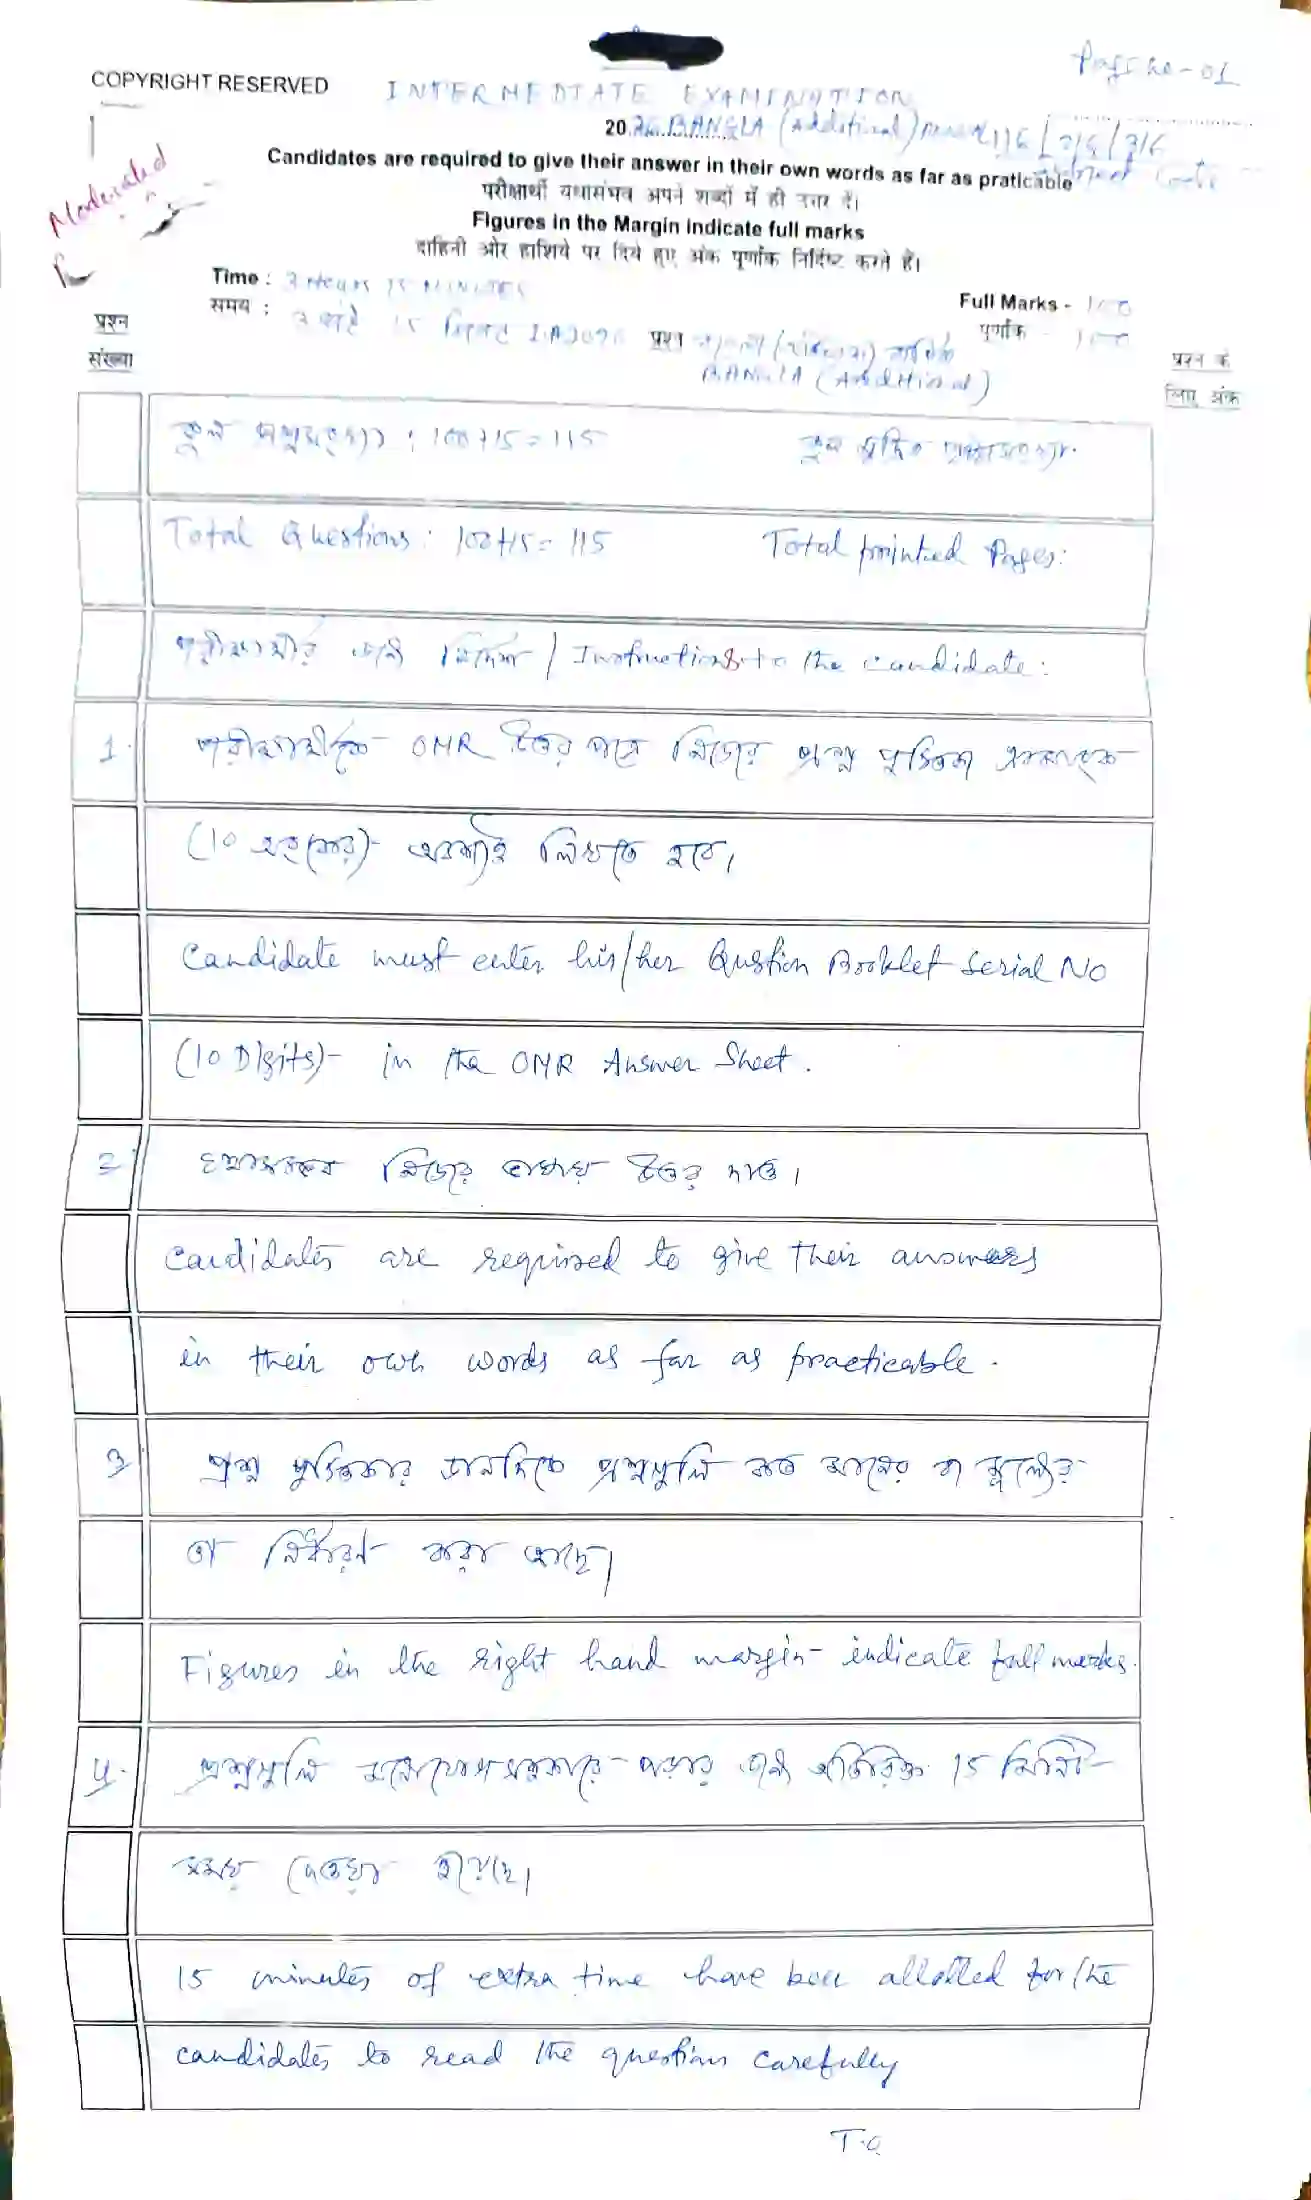 Page no - 01
COPYRIGHT RESERVED
INTERMEDIATE EXAMINATION
2026 BANGLA (Additional) 116/216/316
Moderated
Candidates are required to give their answer in their own words as far as praticable
परीक्षार्थी यथासंभव अपने शब्दों में ही उत्तर दें।
Figures in the Margin indicate full marks
दाहिनी ओर हाशिये पर दिये हुए अंक पूर्णांक निर्दिष्ट करते हैं।
Time : 3 HOURS 15 MINUTES
Full Marks - 100
समय : 3 घंटे 15 मिनट I.A 2026
पूर्णांक - 100
प्रश्न
BANGLA (Additional)
प्रश्न संख्या
प्रश्न के लिए अंक
: 100+15=115
Total Questions: 100+15=115 Total printed Pages:
পরীক্ষার্থীর জন্য নির্দেশ / Instructions to the candidate:
1. পরীক্ষার্থীকে OMR উত্তর পত্রে নিজের প্রশ্ন পুস্তিকা ক্রমাঙ্ক
(10 অংকের) অবশ্যই লিখতে হবে।
Candidate must enter his/her Qustion Booklet Serial No
(10 Digits)- in the OMR Answer Sheet.
2 যথাসম্ভব নিজের ভাষায় উত্তর দাও।
Candidates are required to give their answers
in their own words as far as practicable.
3 প্রশ্ন পুস্তিকার ডানদিকে প্রশ্নগুলি কত মানের বা মূল্যের
তা নির্ধারণ করা আছে।
Figures in the right hand margin- indicate full marks.
4. প্রশ্নগুলি মনোযোগসহকারে পড়ার জন্য অতিরিক্ত 15 মিনিট
সময় দেওয়া হয়েছে।
15 minutes of extra time have been allotted for the
candidates to read the question carefully
T.O